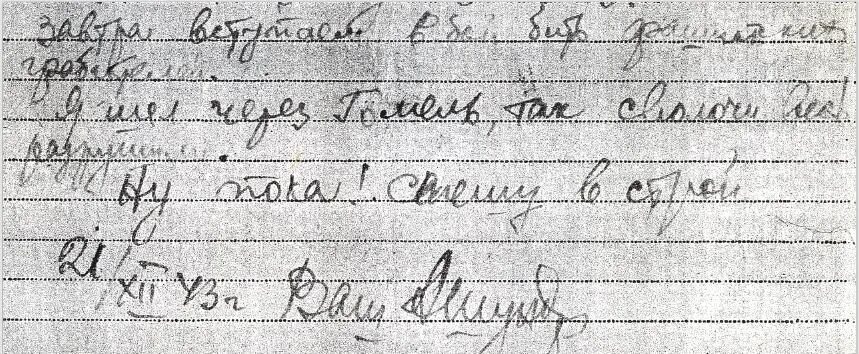 завтра вступаем в бой бить фашистких
грабителей.
Я шел через Гомель, так сволочи все
разрушили.
Ну пока! Спешу в строй
21/XII 43 г Ваш